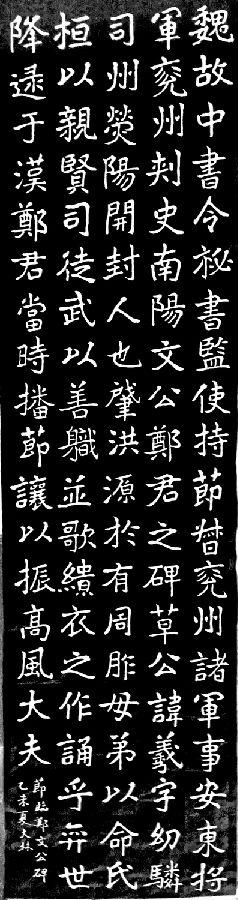 魏故中書令祕書監使持節督兗州諸軍事安東將
軍兗州刾史南陽文公鄭君之碑草公諱羲字幼驎
司州滎陽開封人也肇洪源於有周胙母弟以命氏
桓以親賢司徒武以善職並歌緇衣之作誦乎弈世
降逯于漢鄭君當時播節讓以振高風大夫
節臨鄭文公碑
乙未夏